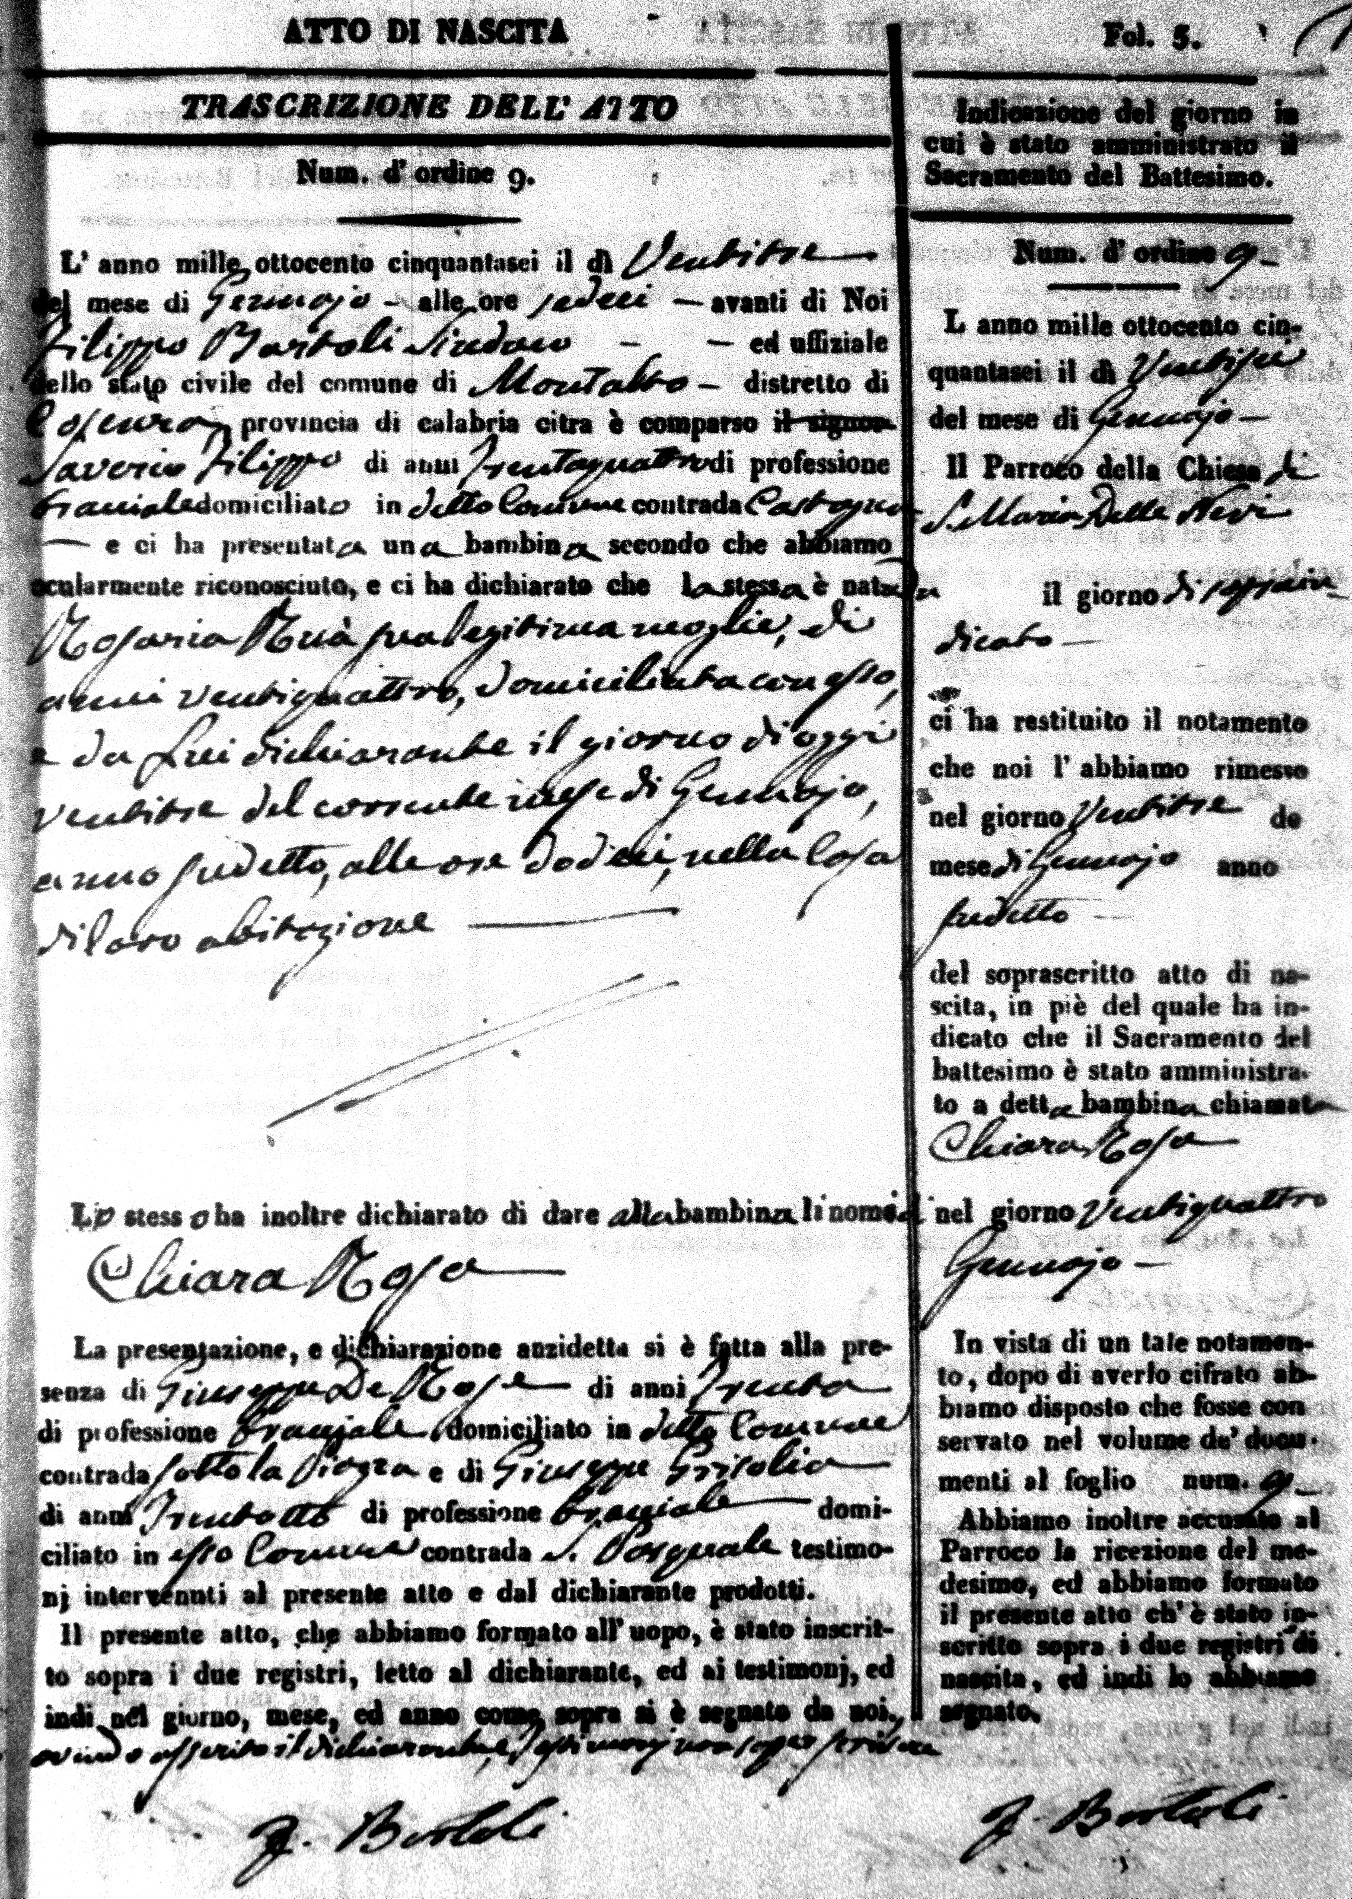 ATTO DI NASCITA
TRASCRIZIONE DELL' ATTO
Num. d' ordine 9.
L' anno mille ottocento cinquantasei il dì Ventitre
del mese di Gennajo - alle ore sedeci - avanti di Noi
Filippo Bartoli Sindaco - - ed uffiziale
dello stato civile del comune di Montalto - distretto di
Cosenza, provincia di calabria citra è comparso il signor
Saverio Filippo di anni Trentaquattro di professione
braciale domiciliato in detto Comune contrada
- e ci ha presentata una bambina secondo che abbiamo
ocularmente riconosciuto, e ci ha dichiarato che la stessa è nata da
Rosaria Ruà sua legitima moglie, di
anni ventiquattro, domiciliata con esso,
e da Lui dichiarante il giorno di oggi
ventitre del corrente mese di Gennajo,
anno sudetto, alle ore dodeci, nella Casa
di loro abitazione
Lo stesso ha inoltre dichiarato di dare alla bambina li nomi di
Chiara Rosa
La presentazione, e dichiarazione anzidetta si è fatta alla pre-
senza di Giuseppe De Rose di anni Trenta
di professione bracciale, domiciliato in detto Comune
contrada sotto la Piazza e di Giuseppe Grisolia
di anni Trentotto di professione bracciale domi-
ciliato in esso Comune contrada S. Pasquale testimo-
nj intervenuti al presente atto e dal dichiarante prodotti.
Il presente atto, che abbiamo formato all' uopo, è stato inscrit-
to sopra i due registri, letto al dichiarante, ed ai testimonj, ed
indi nel giorno, mese, ed anno come sopra si è segnato da noi,
avendo asserito il dichiarante, Testimonj non saper scrivere
F. Bartoli
Fol. 5.
Indicazione del giorno in
cui è stato amministrato il
Sacramento del Battesimo.
Num. d' ordine 9 -
L anno mille ottocento cin-
quantasei il dì
del mese di Gennajo -
Il Parroco della Chiesa di
S. Maria Della Nevi
il giorno di sopra in-
dicato -
ci ha restituito il notamento
che noi l' abbiamo rimesso
nel giorno Ventitre de
mese di Gennajo anno
sudetto -
del soprascritto atto di na-
scita, in piè del quale ha in-
dicato che il Sacramento del
battesimo è stato amministra-
to a detta bambina chiamata
Chiara Rosa
nel giorno Ventiquattro
Gennajo -
In vista di un tale notamen-
to, dopo di averlo cifrato ab-
biamo disposto che fosse con
servato nel volume de' docu-
menti al foglio num. 9 -
Abbiamo inoltre accusato al
Parroco la ricezione del me-
desimo, ed abbiamo formato
il presente atto ch' è stato in-
scritto sopra i due registri di
nascita, ed indi lo abbiamo
segnato.
F. Bartoli